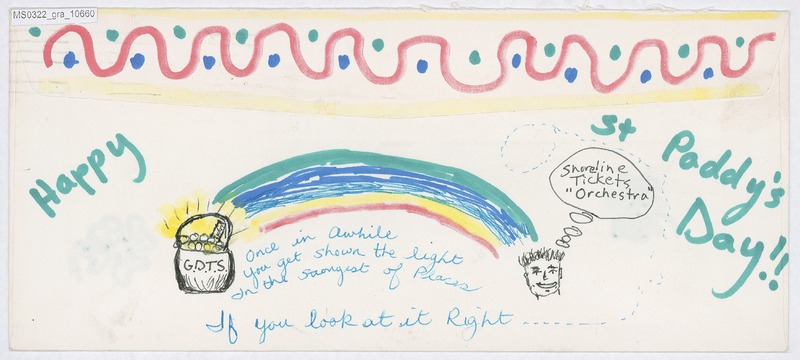 MS0322_gra_10660
Happy
St Paddy's
Day!!
Shoreline
Tickets
"Orchestra"
G.D.T.S.
Once in awhile
you get shown the light
In the saangest of Places
If you look at it Right